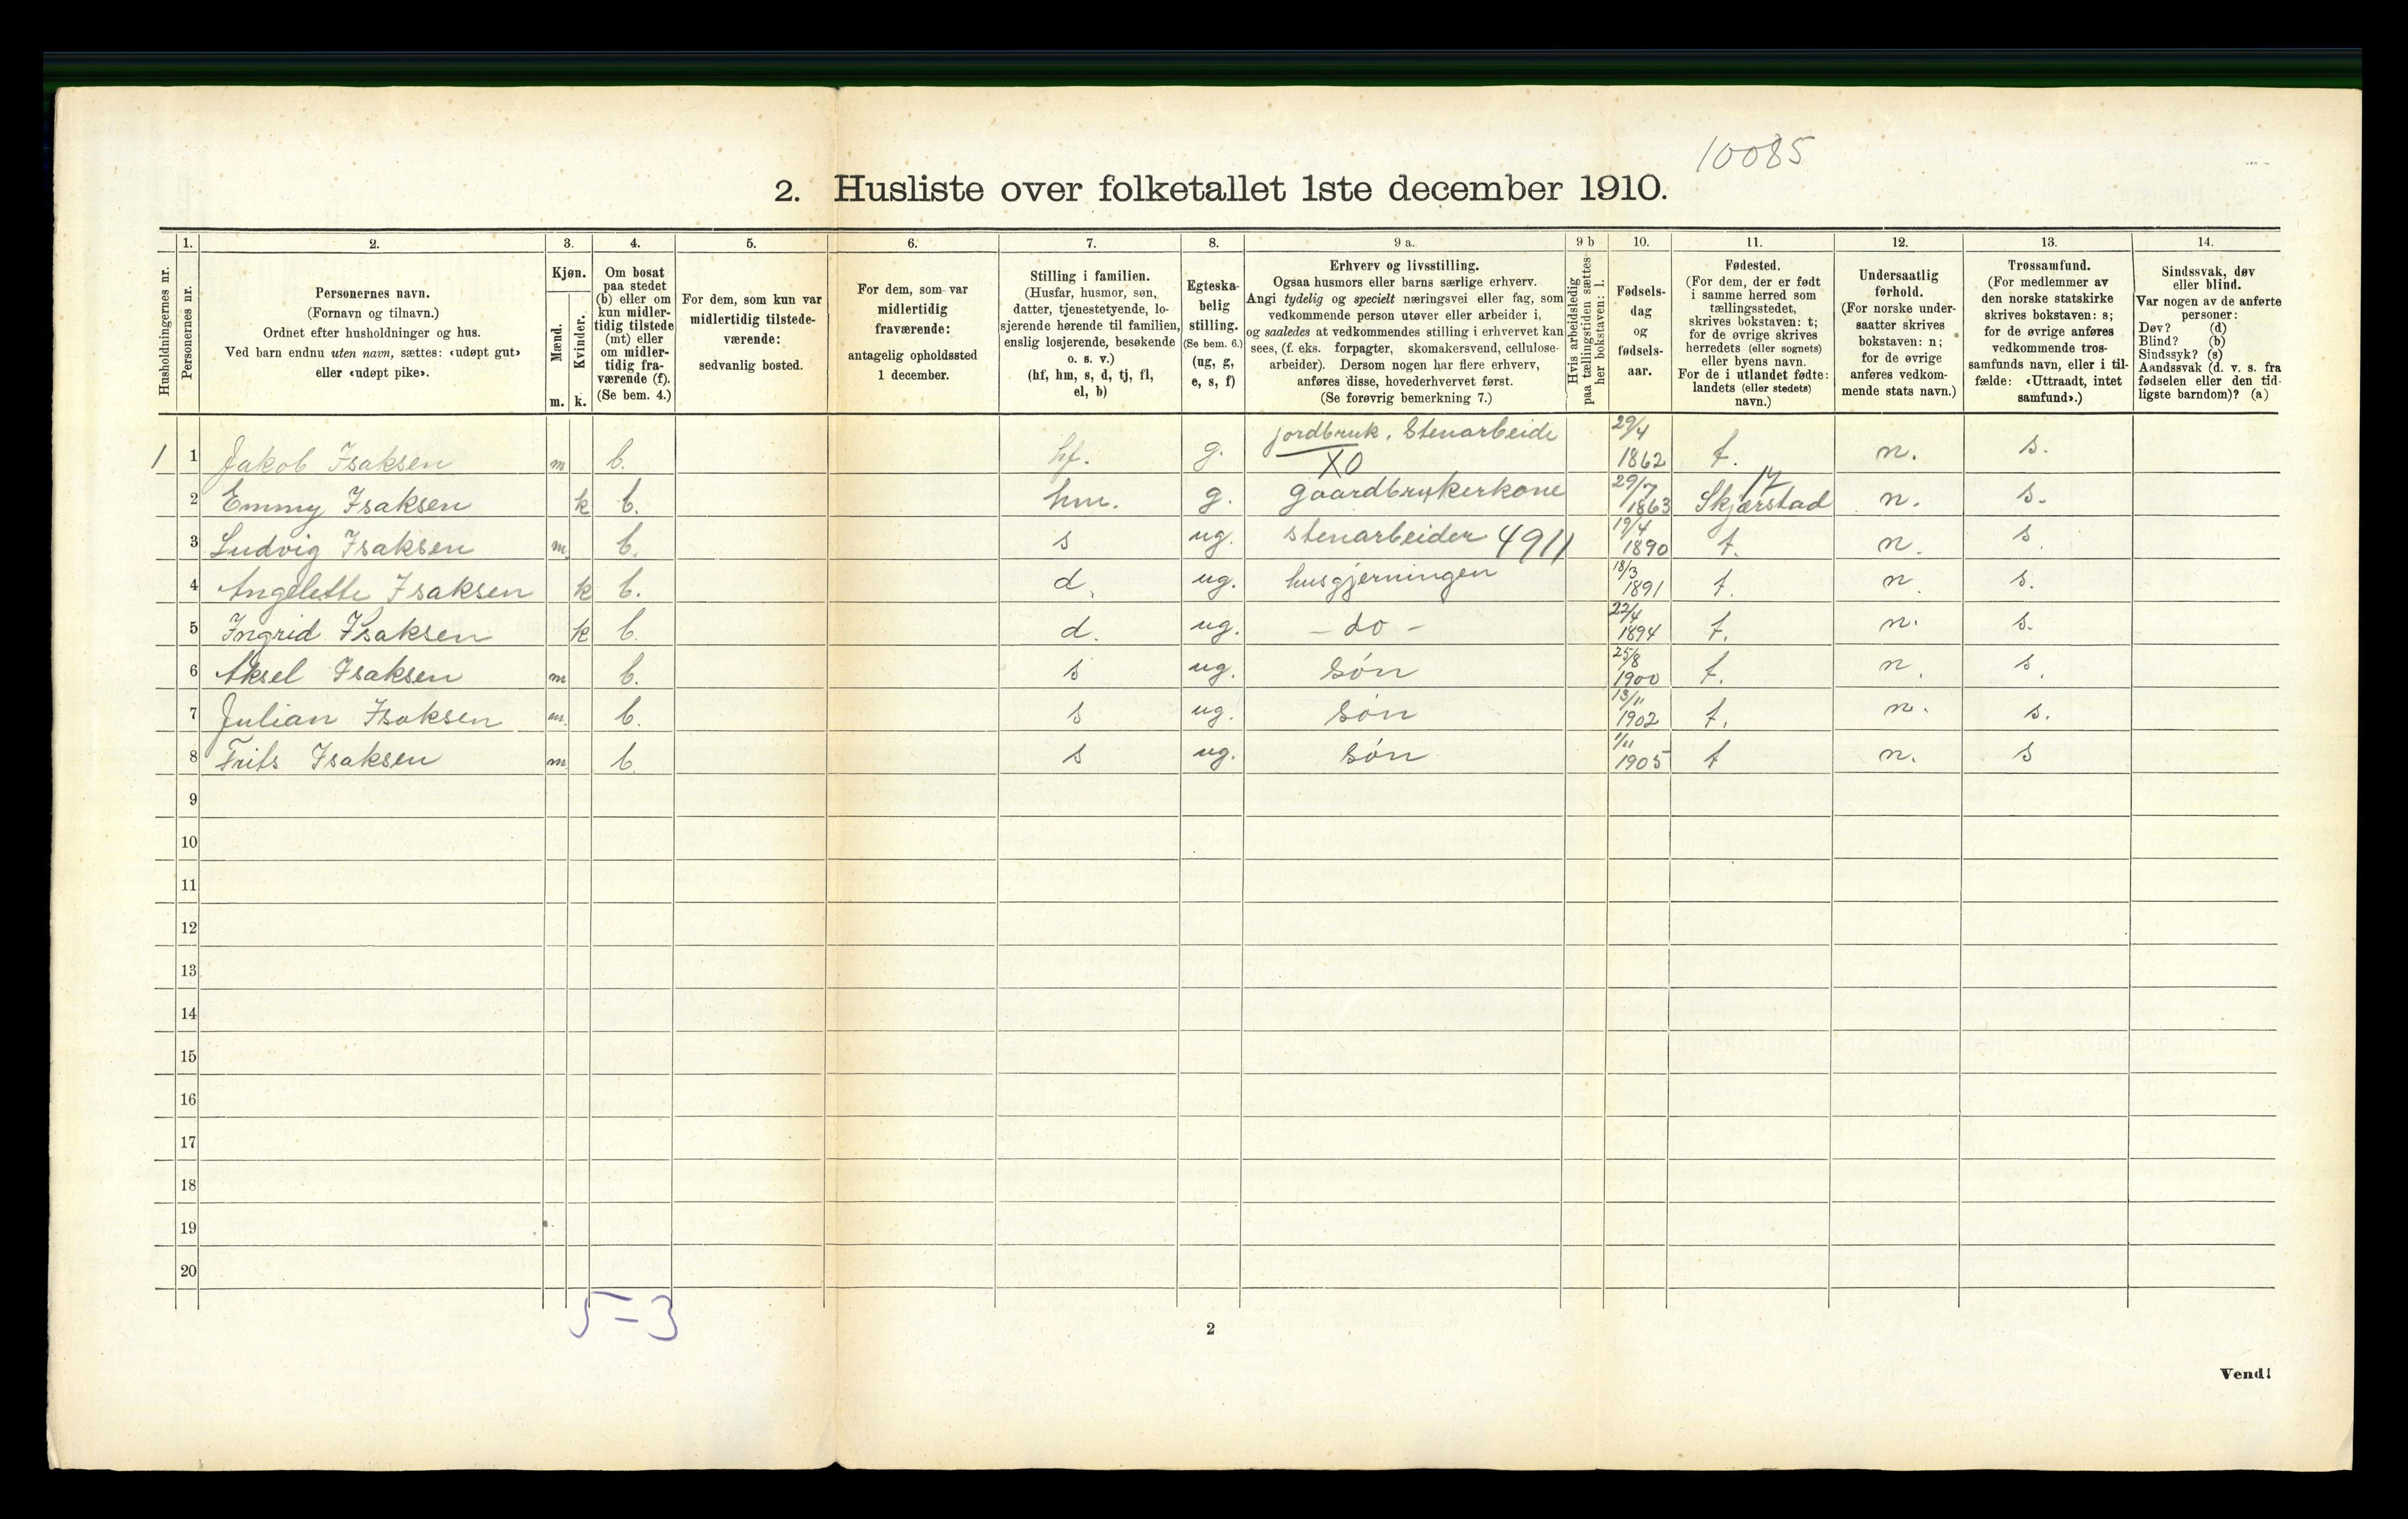 10085
2. Husliste over folketallet 1ste december 1910.
1. 2. 3. 4. 5. 6. 7. 8. 9 a. 9 b 10. 11. 12. 13. 14.
Husholdningernes nr.
Personernes nr.
Personernes navn.
(Fornavn og tilnavn.)
Ordnet efter husholdninger og hus.
Ved barn endnu uten navn, sættes: «udøpt gut»
eller «udøpt pike».
Kjøn.
Mænd.
Kvinder.
m. k.
Om bosat
paa stedet
(b) eller om
kun midler-
tidig tilstede
(mt) eller
om midler-
tidig fra-
værende (f).
(Se bem. 4.)
For dem, som kun var
midlertidig tilstede-
værende:
sedvanlig bosted.
For dem, som var
midlertidig
fraværende:
antagelig opholdssted
1 december.
Stilling i familien.
(Husfar, husmor, søn,
datter, tjenestetyende, lo-
sjerende hørende til familien,
enslig losjerende, besøkende
o. s. v.)
(hf, hm, s, d, tj, fl,
el, b)
Egteska-
belig
stilling.
(Se bem. 6.)
(ug, g,
e, s, f)
Erhverv og livsstilling.
Ogsaa husmors eller barns særlige erhverv.
Angi tydelig og specielt næringsvei eller fag, som
vedkommende person utøver eller arbeider i,
og saaledes at vedkommendes stilling i erhvervet kan
sees, (f. eks. forpagter, skomakersvend, cellulose-
arbeider). Dersom nogen har flere erhverv,
anføres disse, hovederhvervet først.
(Se forøvrig bemerkning 7.)
Hvis arbeidsledig
paa tællingstiden sættes
her bokstaven: l.
Fødsels-
dag
og
fødsels-
aar.
Fødested.
(For dem, der er født
i samme herred som
tællingsstedet,
skrives bokstaven: t;
for de øvrige skrives
herredets (eller sognets)
eller byens navn.
For de i utlandet fødte:
landets (eller stedets)
navn.)
Undersaatlig
forhold.
(For norske under-
saatter skrives
bokstaven: n;
for de øvrige
anføres vedkom-
mende stats navn.)
Trossamfund.
(For medlemmer av
den norske statskirke
skrives bokstaven: s;
for de øvrige anføres
vedkommende tros-
samfunds navn, eller i til-
fælde: «Uttraadt, intet
samfund».)
Sindssvak, døv
eller blind.
Var nogen av de anførte
personer:
Døv? (d)
Blind? (b)
Sindssyk? (s)
Aandssvak (d. v. s. fra
fødselen eller den tid-
ligste barndom)? (a)
1 1 Jakob Isaksen m b. hf. g. jordbruk, Stenarbeide XO 29/4 1862 t. n. s.
2 Emmy Isaksen k b. hm. g. gaardbrukerkone 29/7 1863 Skjærstad n. s.
3 Ludvig Isaksen m. b. s ug. stenarbeider 4911 19/4 1890 t. n. s
4 Angelette Isaksen k b. d. ug. husgjerningen 18/3 1891 t. n s.
5 Ingrid Isaksen k b. d. ug. - do - 22/4 1894 t. n. s.
6 Aksel Isaksen m b. s ug. Søn 25/8 1900 t. n. s.
7 Julian Isaksen m. b. s ug. Søn 13/11 1902 t. n. s.
8 Frits Isaksen m b. s ug. Søn 1/11 1905 t n. s
9
10
11
12
13
14
15
16
17
18
19
20
5-3
2
Vend!